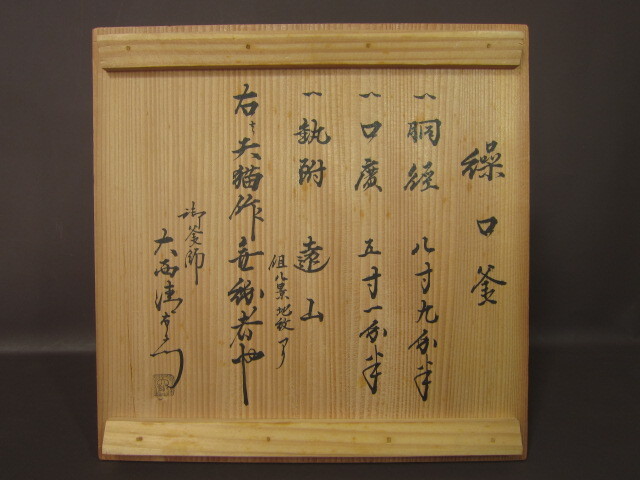 繰口釜
一 胴径 八寸九分半
一 口廣 五寸一分半
一 執附 遠山
但八景地紋アリ
右ハ天猫作無紛者也
御釜師
大西清右衛門